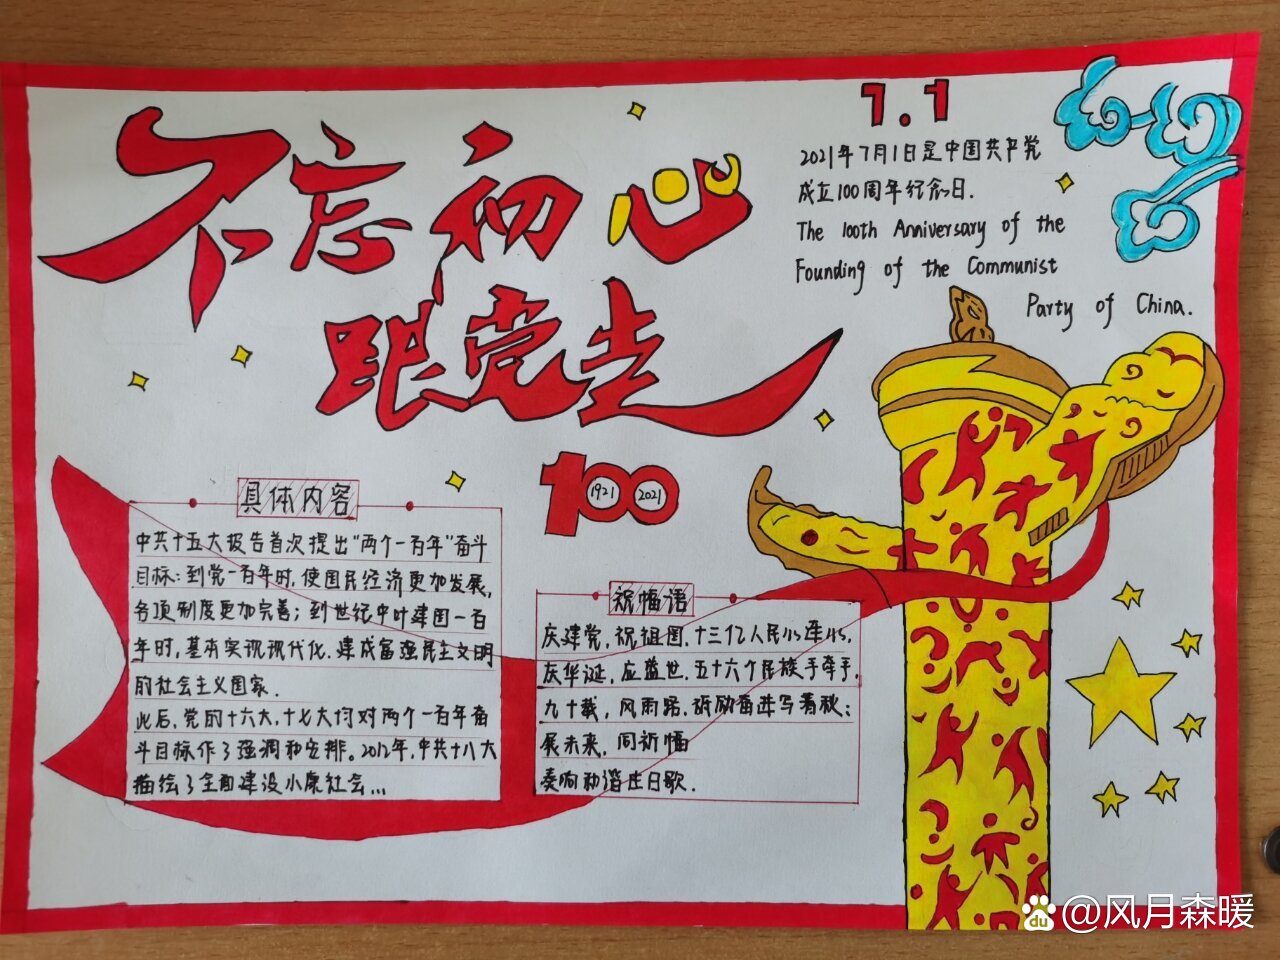 不忘初心
跟党走
7.1
2021年7月1日是中国共产党
成立100周年纪念日.
The 100th Anniversary of the
Founding of the Communist
Party of China.
100
1921
2021
具体内容
中共十五大报告首次提出“两个一百年”奋斗
目标:到党一百年时,使国民经济更加发展,
各项制度更加完善;到世纪中叶建国一百
年时,基本实现现代化.建成富强民主文明
的社会主义国家.
此后,党的十六大,十七大均对两个一百年奋
斗目标作了强调和安排.2012年,中共十八大
描绘了全面建设小康社会...
祝福语
庆建党,祝祖国,十三亿人民心连心,
庆华诞,应盛世,五十六个民族手牵手,
九十载,风雨路,砥励奋进写春秋;
展未来,同祈福
奏响和谐庄日歌.
du @风月森暖